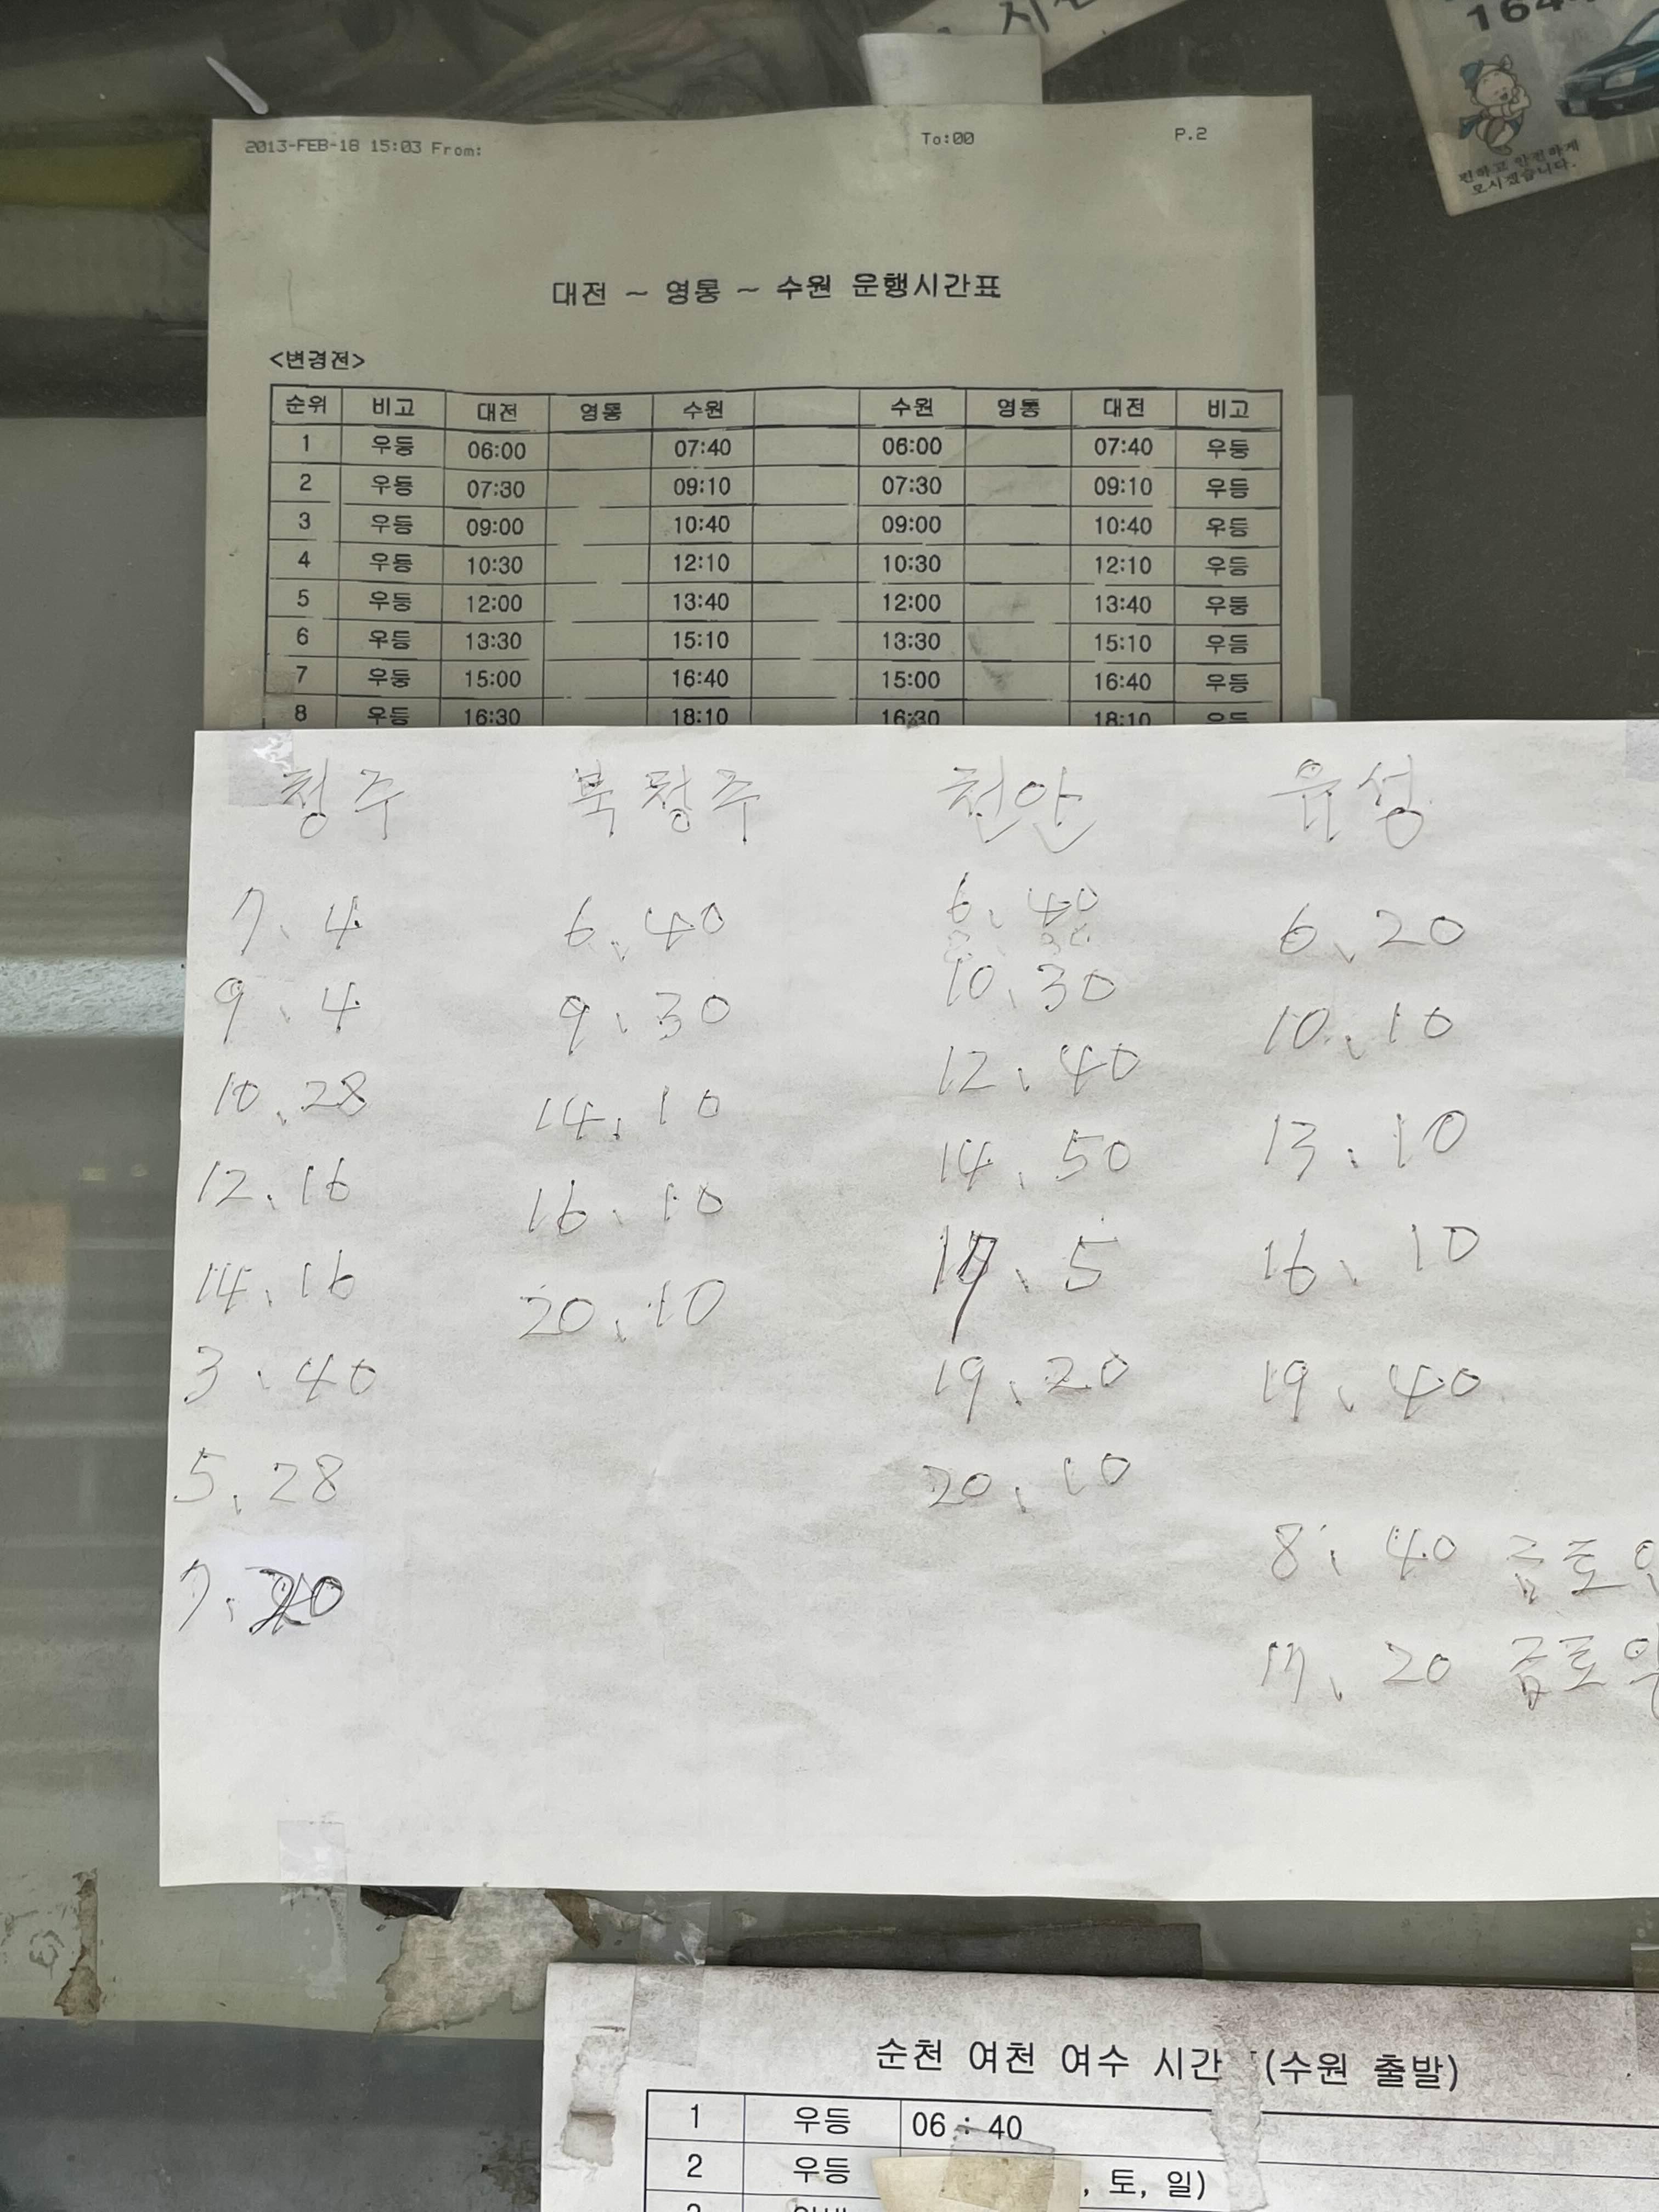 시간
164
편하고 안전하게
모시겠습니다.
2013-FEB-18 15:03 From: To:00 P.2
대전 ~ 영통 ~ 수원 운행시간표
<변경전>
순위 비고 대전 영통 수원 수원 영통 대전 비고
1 우등 06:00 07:40 06:00 07:40 우등
2 우등 07:30 09:10 07:30 09:10 우등
3 우등 09:00 10:40 09:00 10:40 우등
4 우등 10:30 12:10 10:30 12:10 우등
5 우등 12:00 13:40 12:00 13:40 우등
6 우등 13:30 15:10 13:30 15:10 우등
7 우등 15:00 16:40 15:00 16:40 우등
8 우등 16:30 18:10 16:30 18:10 우등
청주 북청주 천안 유성
7.4 6.40 6.40 6.20
9.4 9.30 10.30 10.10
10.28 14.10 12.40 13.10
12.16 16.10 14.50 16.10
14.16 20.10 17.5 19.40
3.40 19.20
5.28 20.10
8.40 금토일
7. 17.20 금토일
순천 여천 여수 시간 (수원 출발)
1 우등 06 : 40
2 우등 , 토, 일)